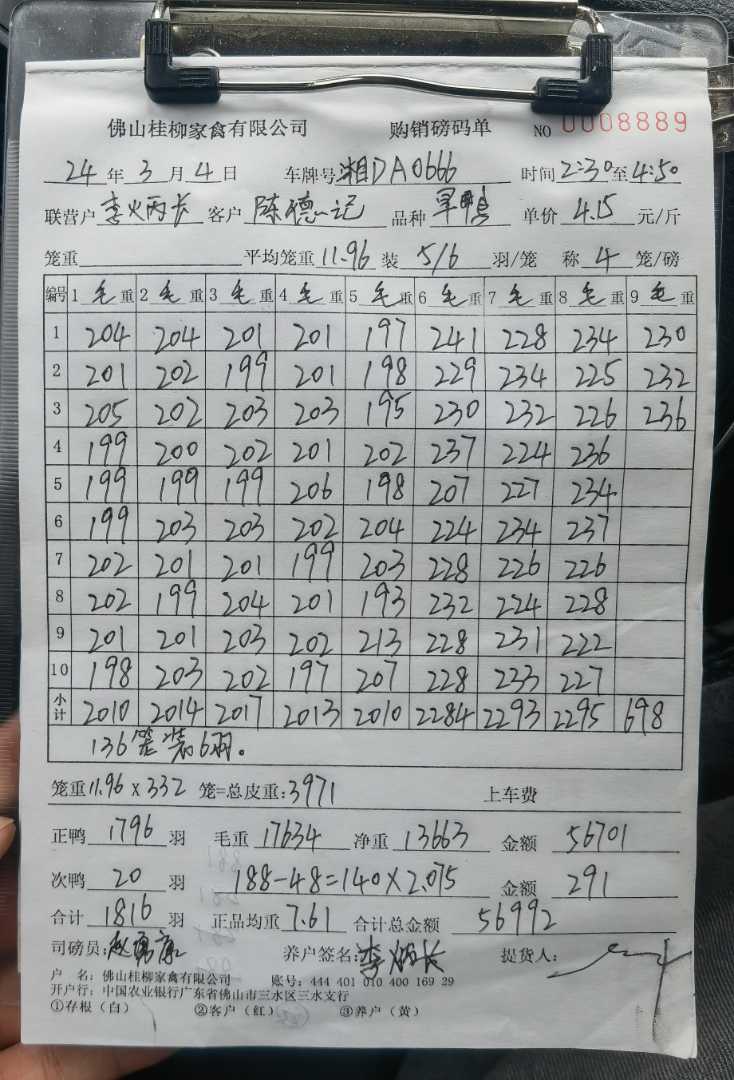 佛山桂柳家禽有限公司 购销磅码单 NO 0008889
24年3月4日 车牌号湘DA0666 时间2:30至4:50
联营户李火丙长 客户陈德记 品种 单价4.15元/斤
笼重 平均笼重11.96装5/6羽/笼 称4笼/磅
编号 1毛重 2毛重 3毛重 4毛重 5毛重 6毛重 7毛重 8毛重 9毛重
1 204 204 201 201 197 241 228 234 230
2 201 202 199 201 198 229 234 225 232
3 205 202 203 203 195 230 232 226 236
4 199 200 202 201 202 237 224 236
5 199 199 199 206 198 207 227 234
6 199 203 203 202 204 224 234 237
7 202 201 201 199 203 228 226 226
8 202 199 204 201 193 232 224 228
9 201 201 203 202 213 228 231 222
10 198 203 202 197 207 228 233 227
小计 2010 2014 2017 2013 2010 2284 2293 2295 698
136笼装6羽。
笼重11.96×332笼=总皮重:3971 上车费
正鸭1796羽 毛重17634 净重13663 金额56701
次鸭20羽 188-48=140×2.075 金额291
合计1816羽 正品均重7.61 合计总金额56992
司磅员: 养户签名:李炳长 提货人:
户 名:佛山桂柳家禽有限公司 账号:444 401 010 400 169 29
开户行:中国农业银行广东省佛山市三水区三水支行
①存根(白) ②客户(红) ③养户(黄)